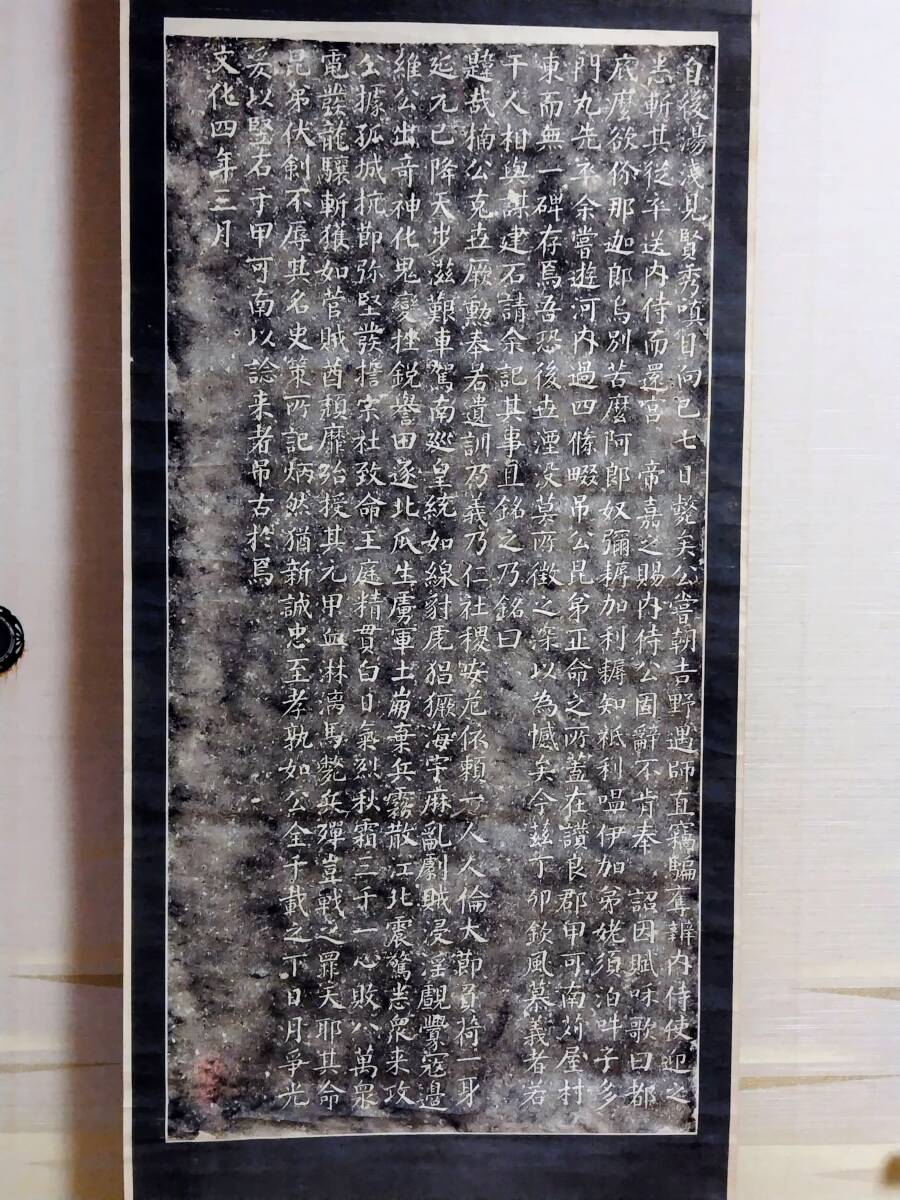 自後湯浅見賢秀嗔目向已七日斃矣公嘗朝吉野遇師直竊騙奪辨內侍使迎之
恚斬其從卒送內侍而還宮　帝嘉之賜內侍公固辭不肯奉　詔因賦咊歌曰都
底麼欲你那迦郎烏別苦麼阿郎奴彌耨加利耨知祇利嗢伊加弟姥須泊吽子多
門丸先卒余嘗遊河內過四條畷吊公昆弟正命之所蓋在讃良郡甲可南苅屋村
東而無一碑存焉吾恐後世湮没莫所徵之深以為憾矣今玆丁卯欽風慕義者若
干人相與謀建石請余記其事且銘之乃銘曰
韙哉楠公克世厥勲奉若遺訓乃義乃仁社稷安危依賴一人人倫大節負荷一身
延元已降天步滋艱車駕南廵皇統如線豺虎猖獗海宇麻亂劇賊浸淫覬釁寇邊
維公出奇神化鬼變挫銳譽田逐北瓜生虜軍土崩棄兵霧散江北震驚恚衆来攻
公據孤城抗節弥堅發擔宗社致命王庭精貫白日氣烈秋霜三千一心敗八萬衆
電發龍驤斬獲如菅賊酋頹靡殆授其元甲血淋漓馬斃兵殫豈戰之罪天耶其命
昆弟伏劍不辱其名史策所記炳然猶新誠忠至孝孰如公全千載之下日月爭光
爰以堅石于甲可南以諗来者吊古於焉
文化四年三月